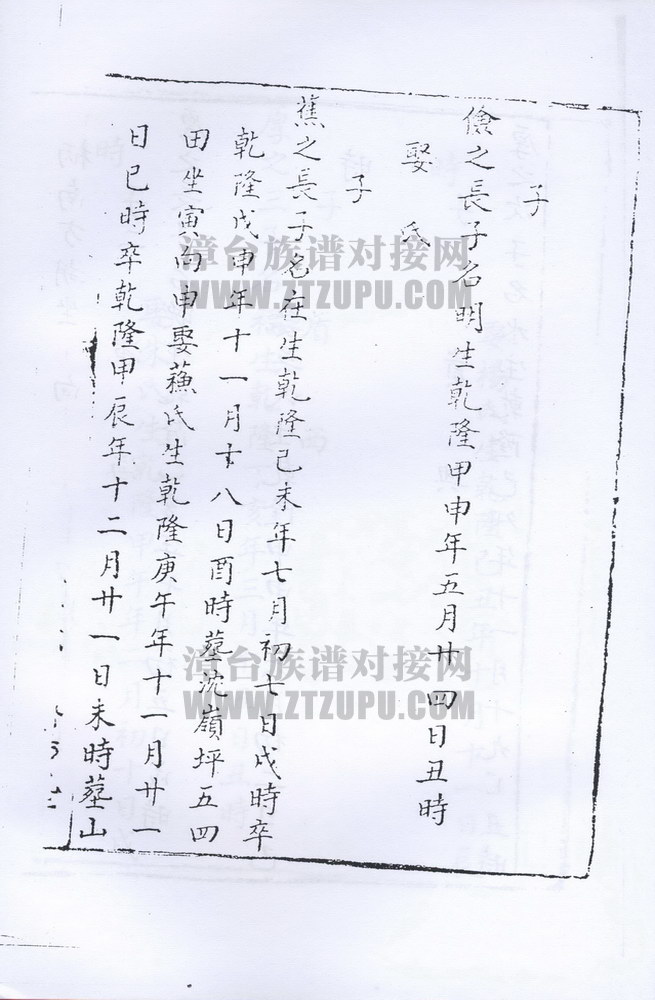 子
儉之長子名明生乾隆甲申年五月廿四日丑時
娶 氏
子
蕉之長子名在生乾隆己未年七月初七日戌時卒
乾隆戊申年十一月十八日酉時墓沈嶺坪五四
田坐寅向申娶蘓氏生乾隆庚午年十一月廿一
日巳時卒乾隆甲辰年十二月廿一日未時墓山
漳台族谱对接网
WWW.ZTZUPU.COM
漳台族谱对接网
WWW.ZTZUPU.COM